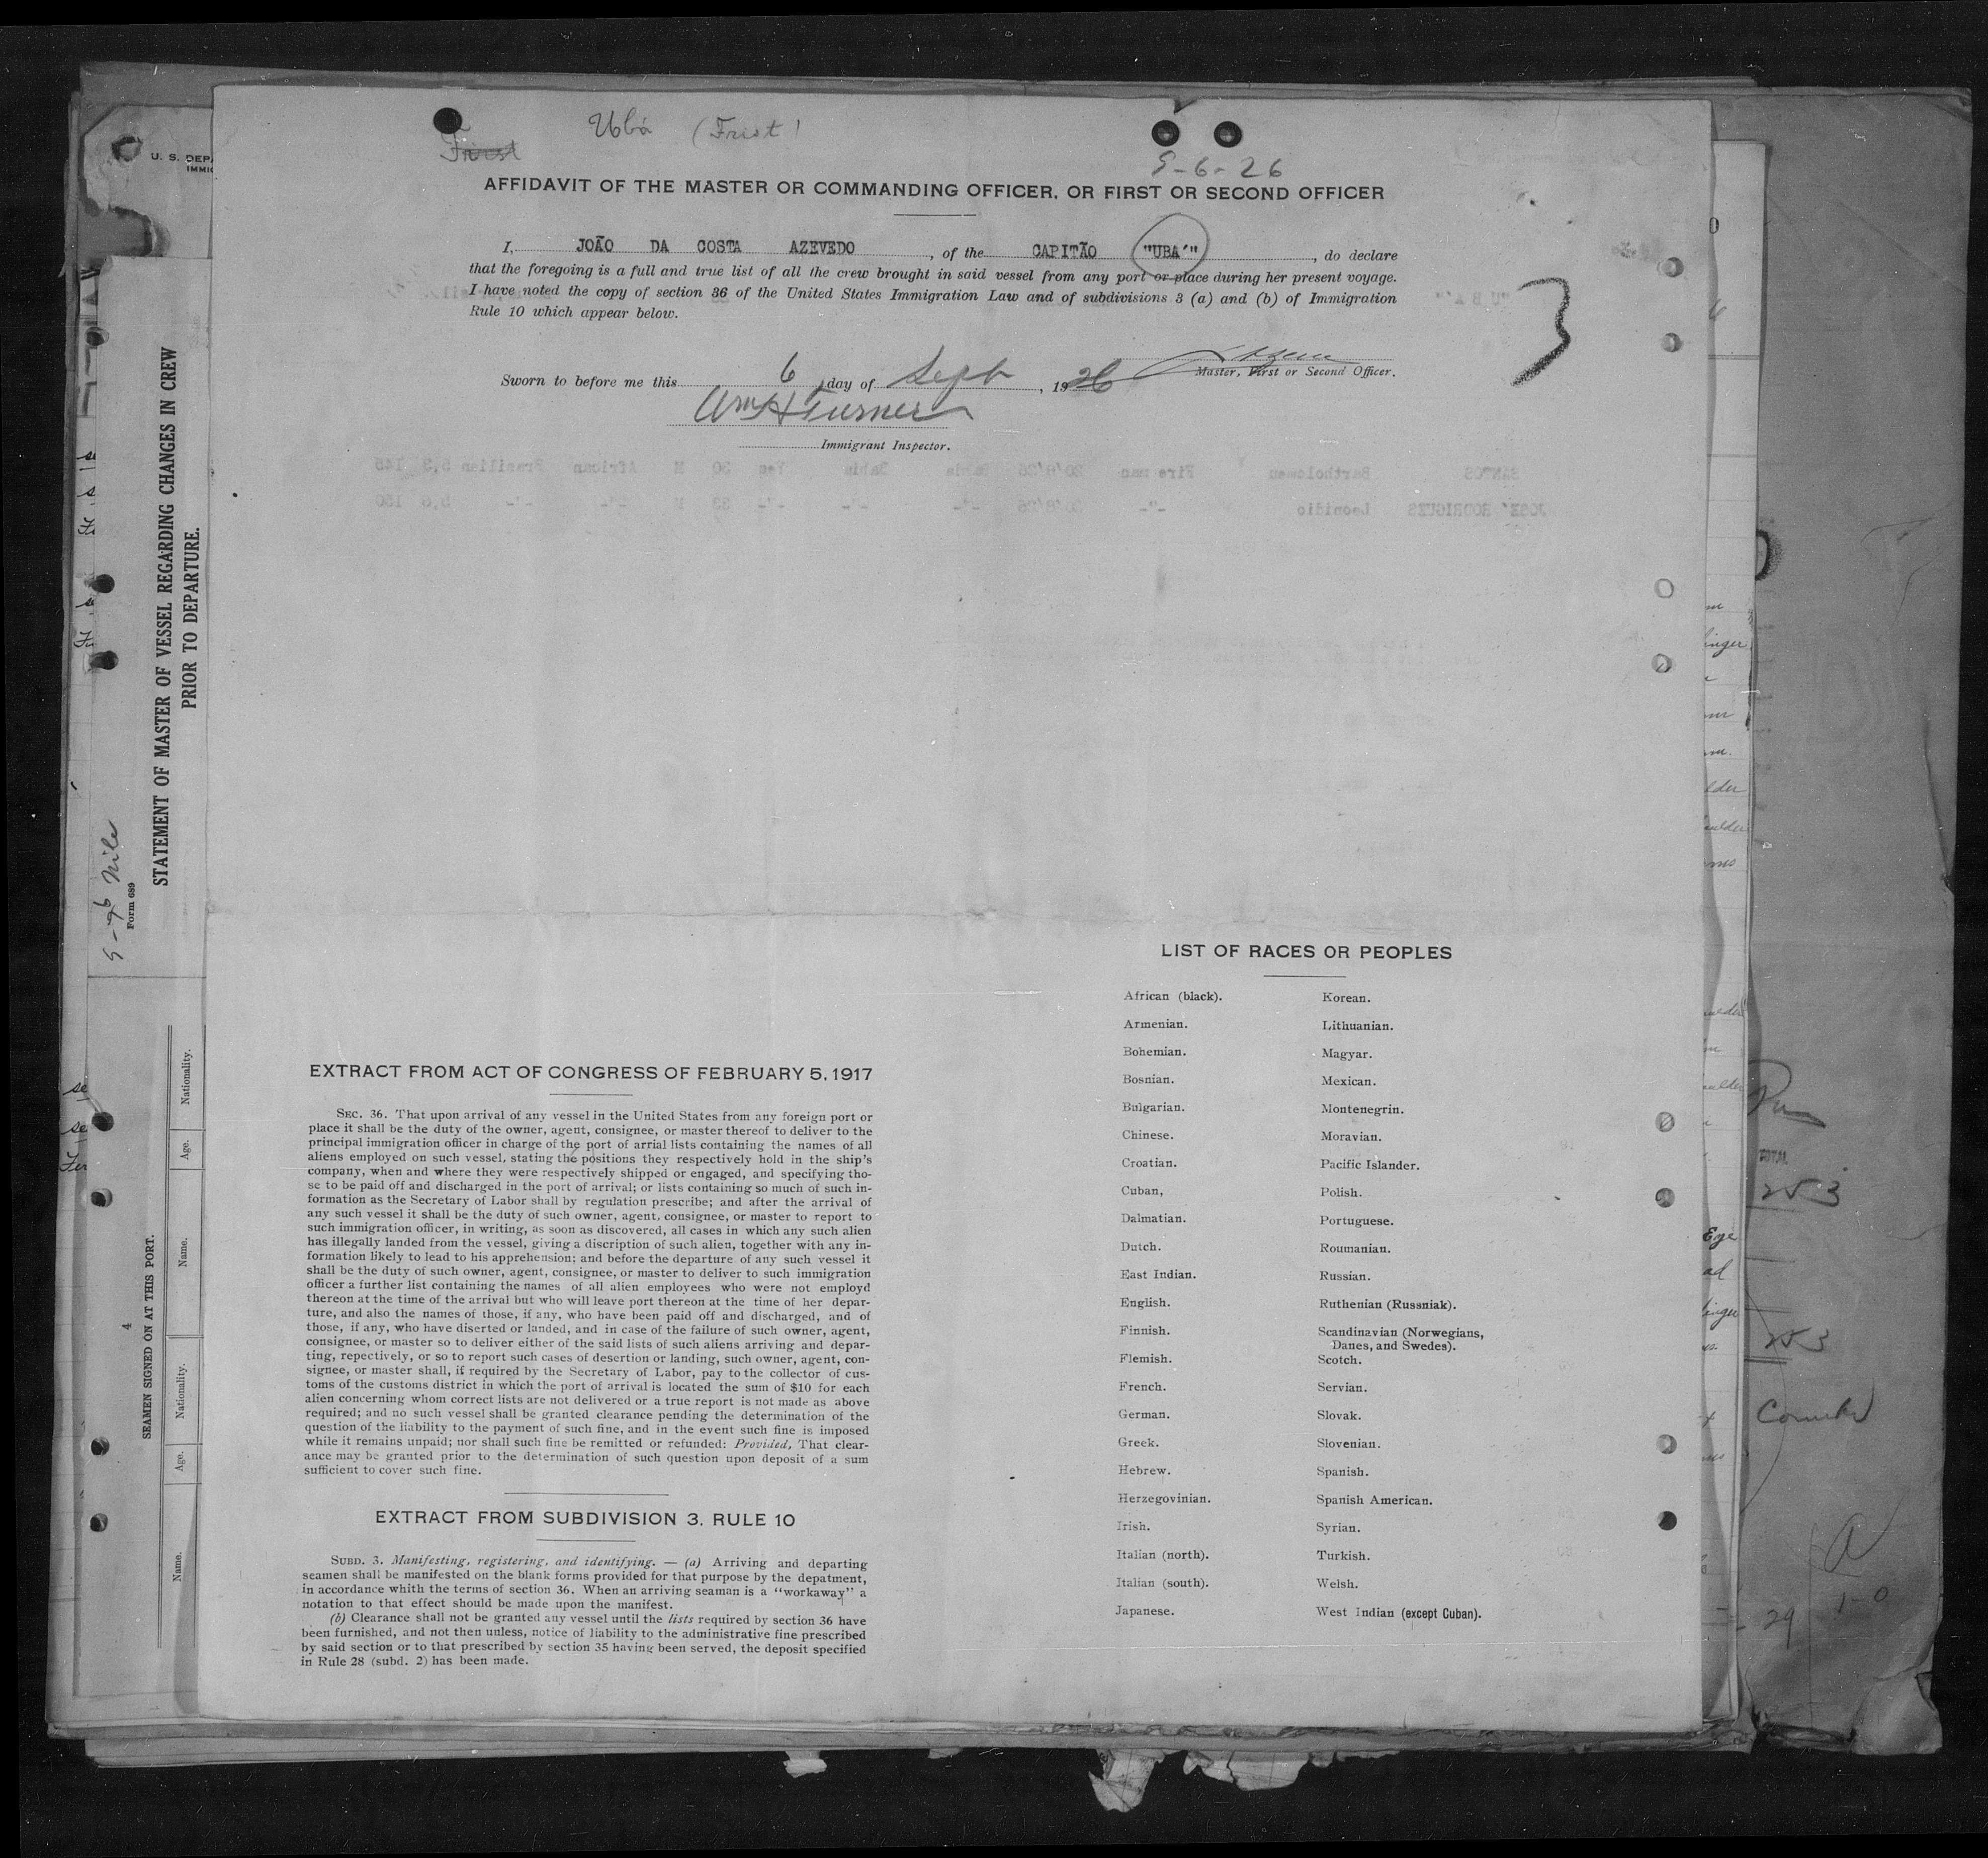 Ubá (Frist)
Frist
9-6-26
AFFIDAVIT OF THE MASTER OR COMMANDING OFFICER, OR FIRST OR SECOND OFFICER
I, JOÃO DA COSTA AZEVEDO, of the CAPITÃO "UBA'", do declare
that the foregoing is a full and true list of all the crew brought in said vessel from any port or place during her present voyage.
I have noted the copy of section 36 of the United States Immigration Law and of subdivisions 3 (a) and (b) of Immigration
Rule 10 which appear below.
3
Master, First or Second Officer.
Sworn to before me this 6 day of Sept, 1926
Wm H Turner
Immigrant Inspector.
LIST OF RACES OR PEOPLES
African (black).
Armenian.
Bohemian.
Bosnian.
Bulgarian.
Chinese.
Croatian.
Cuban,
Dalmatian.
Dutch.
East Indian.
English.
Finnish.
Flemish.
French.
German.
Greek.
Hebrew.
Herzegovinian.
Irish.
Italian (north).
Italian (south).
Japanese.
Korean.
Lithuanian.
Magyar.
Mexican.
Montenegrin.
Moravian.
Pacific Islander.
Polish.
Portuguese.
Roumanian.
Russian.
Ruthenian (Russniak).
Scandinavian (Norwegians,
Danes, and Swedes).
Scotch.
Servian.
Slovak.
Slovenian.
Spanish.
Spanish American.
Syrian.
Turkish.
Welsh.
West Indian (except Cuban).
EXTRACT FROM ACT OF CONGRESS OF FEBRUARY 5, 1917
SEC. 36. That upon arrival of any vessel in the United States from any foreign port or
place it shall be the duty of the owner, agent, consignee, or master thereof to deliver to the
principal immigration officer in charge of the port of arrial lists containing the names of all
aliens employed on such vessel, stating the positions they respectively hold in the ship's
company, when and where they were respectively shipped or engaged, and specifying tho-
se to be paid off and discharged in the port of arrival; or lists containing so much of such in-
formation as the Secretary of Labor shall by regulation prescribe; and after the arrival of
any such vessel it shall be the duty of such owner, agent, consignee, or master to report to
such immigration officer, in writing, as soon as discovered, all cases in which any such alien
has illegally landed from the vessel, giving a discription of such alien, together with any in-
formation likely to lead to his apprehension; and before the departure of any such vessel it
shall be the duty of such owner, agent, consignee, or master to deliver to such immigration
officer a further list containing the names of all alien employees who were not employd
thereon at the time of the arrival but who will leave port thereon at the time of her depar-
ture, and also the names of those, if any, who have been paid off and discharged, and of
those, if any, who have diserted or landed, and in case of the failure of such owner, agent,
consignee, or master so to deliver either of the said lists of such aliens arriving and depar-
ting, repectively, or so to report such cases of desertion or landing, such owner, agent, con-
signee, or master shall, if required by the Secretary of Labor, pay to the collector of cus-
toms of the customs district in which the port of arrival is located the sum of $10 for each
alien concerning whom correct lists are not delivered or a true report is not made as above
required; and no such vessel shall be granted clearance pending the determination of the
question of the liability to the payment of such fine, and in the event such fine is imposed
while it remains unpaid; nor shall such fine be remitted or refunded: Provided, That clear-
ance may be granted prior to the determination of such question upon deposit of a sum
sufficient to cover such fine.
EXTRACT FROM SUBDIVISION 3. RULE 10
SUBD. 3. Manifesting, registering, and identifying. — (a) Arriving and departing
seamen shall be manifested on the blank forms provided for that purpose by the depatment,
in accordance whith the terms of section 36. When an arriving seaman is a "workaway" a
notation to that effect should be made upon the manifest.
(b) Clearance shall not be granted any vessel until the lists required by section 36 have
been furnished, and not then unless, notice of liability to the administrative fine prescribed
by said section or to that prescribed by section 35 having been served, the deposit specified
in Rule 28 (subd. 2) has been made.
U. S. DEPA
IMMIG
STATEMENT OF MASTER OF VESSEL REGARDING CHANGES IN CREW
PRIOR TO DEPARTURE.
Form 689
4
SEAMEN SIGNED ON AT THIS PORT.
Name.
Age.
Nationality.
Name.
Age.
Nationality.
TOTAL
253
253
29